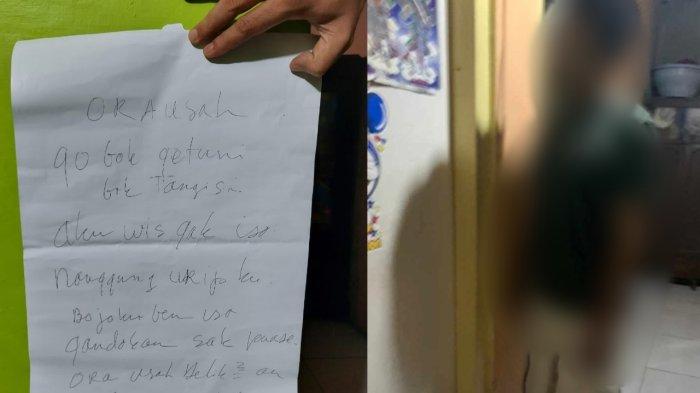 ORA USAH
go bok getuni
bok Tangisi.
aku wis gak iso
nanggung URIP ku.
Bojoku ben iso
gandokan sak
ORA USAH